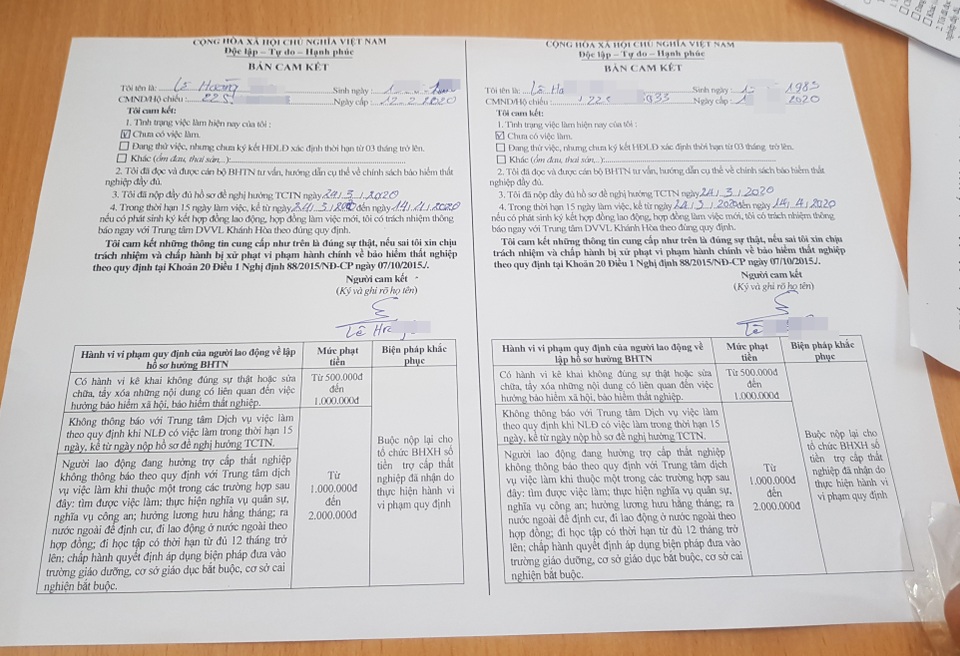 CỘNG HÒA XÃ HỘI CHỦ NGHĨA VIỆT NAM
Độc lập – Tự do – Hạnh phúc
BẢN CAM KẾT
Tôi tên là: Lê Hoàng Sinh ngày: 1
CMND/Hộ chiếu: 225 Ngày cấp: 12.2.2020
Tôi cam kết:
1. Tình trạng việc làm hiện nay của tôi :
☑ Chưa có việc làm.
☐ Đang thử việc, nhưng chưa ký kết HĐLĐ xác định thời hạn từ 03 tháng trở lên.
☐ Khác (ốm đau, thai sản...):
2. Tôi đã đọc và được cán bộ BHTN tư vấn, hướng dẫn cụ thể về chính sách bảo hiểm thất
nghiệp đầy đủ.
3. Tôi đã nộp đầy đủ hồ sơ đề nghị hưởng TCTN ngày 24/3/2020
4. Trong thời hạn 15 ngày làm việc, kể từ ngày 24/3/2020 đến ngày 14/4/2020
nếu có phát sinh ký kết hợp đồng lao động, hợp đồng làm việc mới, tôi có trách nhiệm thông
báo ngay với Trung tâm DVVL Khánh Hòa theo đúng quy định.
Tôi cam kết những thông tin cung cấp như trên là đúng sự thật, nếu sai tôi xin chịu
trách nhiệm và chấp hành bị xử phạt vi phạm hành chính về bảo hiểm thất nghiệp
theo quy định tại Khoản 20 Điều 1 Nghị định 88/2015/NĐ-CP ngày 07/10/2015./.
Người cam kết
(Ký và ghi rõ họ tên)
Lê Ho
Hành vi vi phạm quy định của người lao động về lập
hồ sơ hưởng BHTN
Mức phạt
tiền
Biện pháp khắc
phục
Có hành vi kê khai không đúng sự thật hoặc sửa
chữa, tẩy xóa những nội dung có liên quan đến việc
hưởng bảo hiểm xã hội, bảo hiểm thất nghiệp.
Từ 500.000đ
đến
1.000.000đ
Không thông báo với Trung tâm Dịch vụ việc làm
theo quy định khi NLĐ có việc làm trong thời hạn 15
ngày, kể từ ngày nộp hồ sơ đề nghị hưởng TCTN.
Người lao động đang hưởng trợ cấp thất nghiệp
không thông báo theo quy định với Trung tâm dịch
vụ việc làm khi thuộc một trong các trường hợp sau
đây: tìm được việc làm; thực hiện nghĩa vụ quân sự,
nghĩa vụ công an; hưởng lương hưu hằng tháng; ra
nước ngoài để định cư, đi lao động ở nước ngoài theo
hợp đồng; đi học tập có thời hạn từ đủ 12 tháng trở
lên; chấp hành quyết định áp dụng biện pháp đưa vào
trường giáo dưỡng, cơ sở giáo dục bắt buộc, cơ sở cai
nghiện bắt buộc.
Từ
1.000.000đ
đến
2.000.000đ
Buộc nộp lại cho
tổ chức BHXH số
tiền trợ cấp thất
nghiệp đã nhận do
thực hiện hành vi
vi phạm quy định
CỘNG HÒA XÃ HỘI CHỦ NGHĨA VIỆT NAM
Độc lập – Tự do – Hạnh phúc
BẢN CAM KẾT
Tôi tên là: Lê Ho Sinh ngày: 1 1983
CMND/Hộ chiếu: 225 933 Ngày cấp: 1 2020
Tôi cam kết:
1. Tình trạng việc làm hiện nay của tôi :
☑ Chưa có việc làm.
☐ Đang thử việc, nhưng chưa ký kết HĐLĐ xác định thời hạn từ 03 tháng trở lên.
☐ Khác (ốm đau, thai sản...):
2. Tôi đã đọc và được cán bộ BHTN tư vấn, hướng dẫn cụ thể về chính sách bảo hiểm thất
nghiệp đầy đủ.
3. Tôi đã nộp đầy đủ hồ sơ đề nghị hưởng TCTN ngày 24/3/2020
4. Trong thời hạn 15 ngày làm việc, kể từ ngày 24/3/2020 đến ngày 14/4/2020
nếu có phát sinh ký kết hợp đồng lao động, hợp đồng làm việc mới, tôi có trách nhiệm thông
báo ngay với Trung tâm DVVL Khánh Hòa theo đúng quy định.
Tôi cam kết những thông tin cung cấp như trên là đúng sự thật, nếu sai tôi xin chịu
trách nhiệm và chấp hành bị xử phạt vi phạm hành chính về bảo hiểm thất nghiệp
theo quy định tại Khoản 20 Điều 1 Nghị định 88/2015/NĐ-CP ngày 07/10/2015./.
Người cam kết
(Ký và ghi rõ họ tên)
Lê
Hành vi vi phạm quy định của người lao động về lập
hồ sơ hưởng BHTN
Mức phạt
tiền
Biện pháp khắc
phục
Có hành vi kê khai không đúng sự thật hoặc sửa
chữa, tẩy xóa những nội dung có liên quan đến việc
hưởng bảo hiểm xã hội, bảo hiểm thất nghiệp.
Từ 500.000đ
đến
1.000.000đ
Không thông báo với Trung tâm Dịch vụ việc làm
theo quy định khi NLĐ có việc làm trong thời hạn 15
ngày, kể từ ngày nộp hồ sơ đề nghị hưởng TCTN.
Người lao động đang hưởng trợ cấp thất nghiệp
không thông báo theo quy định với Trung tâm dịch
vụ việc làm khi thuộc một trong các trường hợp sau
đây: tìm được việc làm; thực hiện nghĩa vụ quân sự,
nghĩa vụ công an; hưởng lương hưu hằng tháng; ra
nước ngoài để định cư, đi lao động ở nước ngoài theo
hợp đồng; đi học tập có thời hạn từ đủ 12 tháng trở
lên; chấp hành quyết định áp dụng biện pháp đưa vào
trường giáo dưỡng, cơ sở giáo dục bắt buộc, cơ sở cai
nghiện bắt buộc.
Từ
1.000.000đ
đến
2.000.000đ
Buộc nộp lại cho
tổ chức BHXH số
tiền trợ cấp thất
nghiệp đã nhận do
thực hiện hành vi
vi phạm quy định